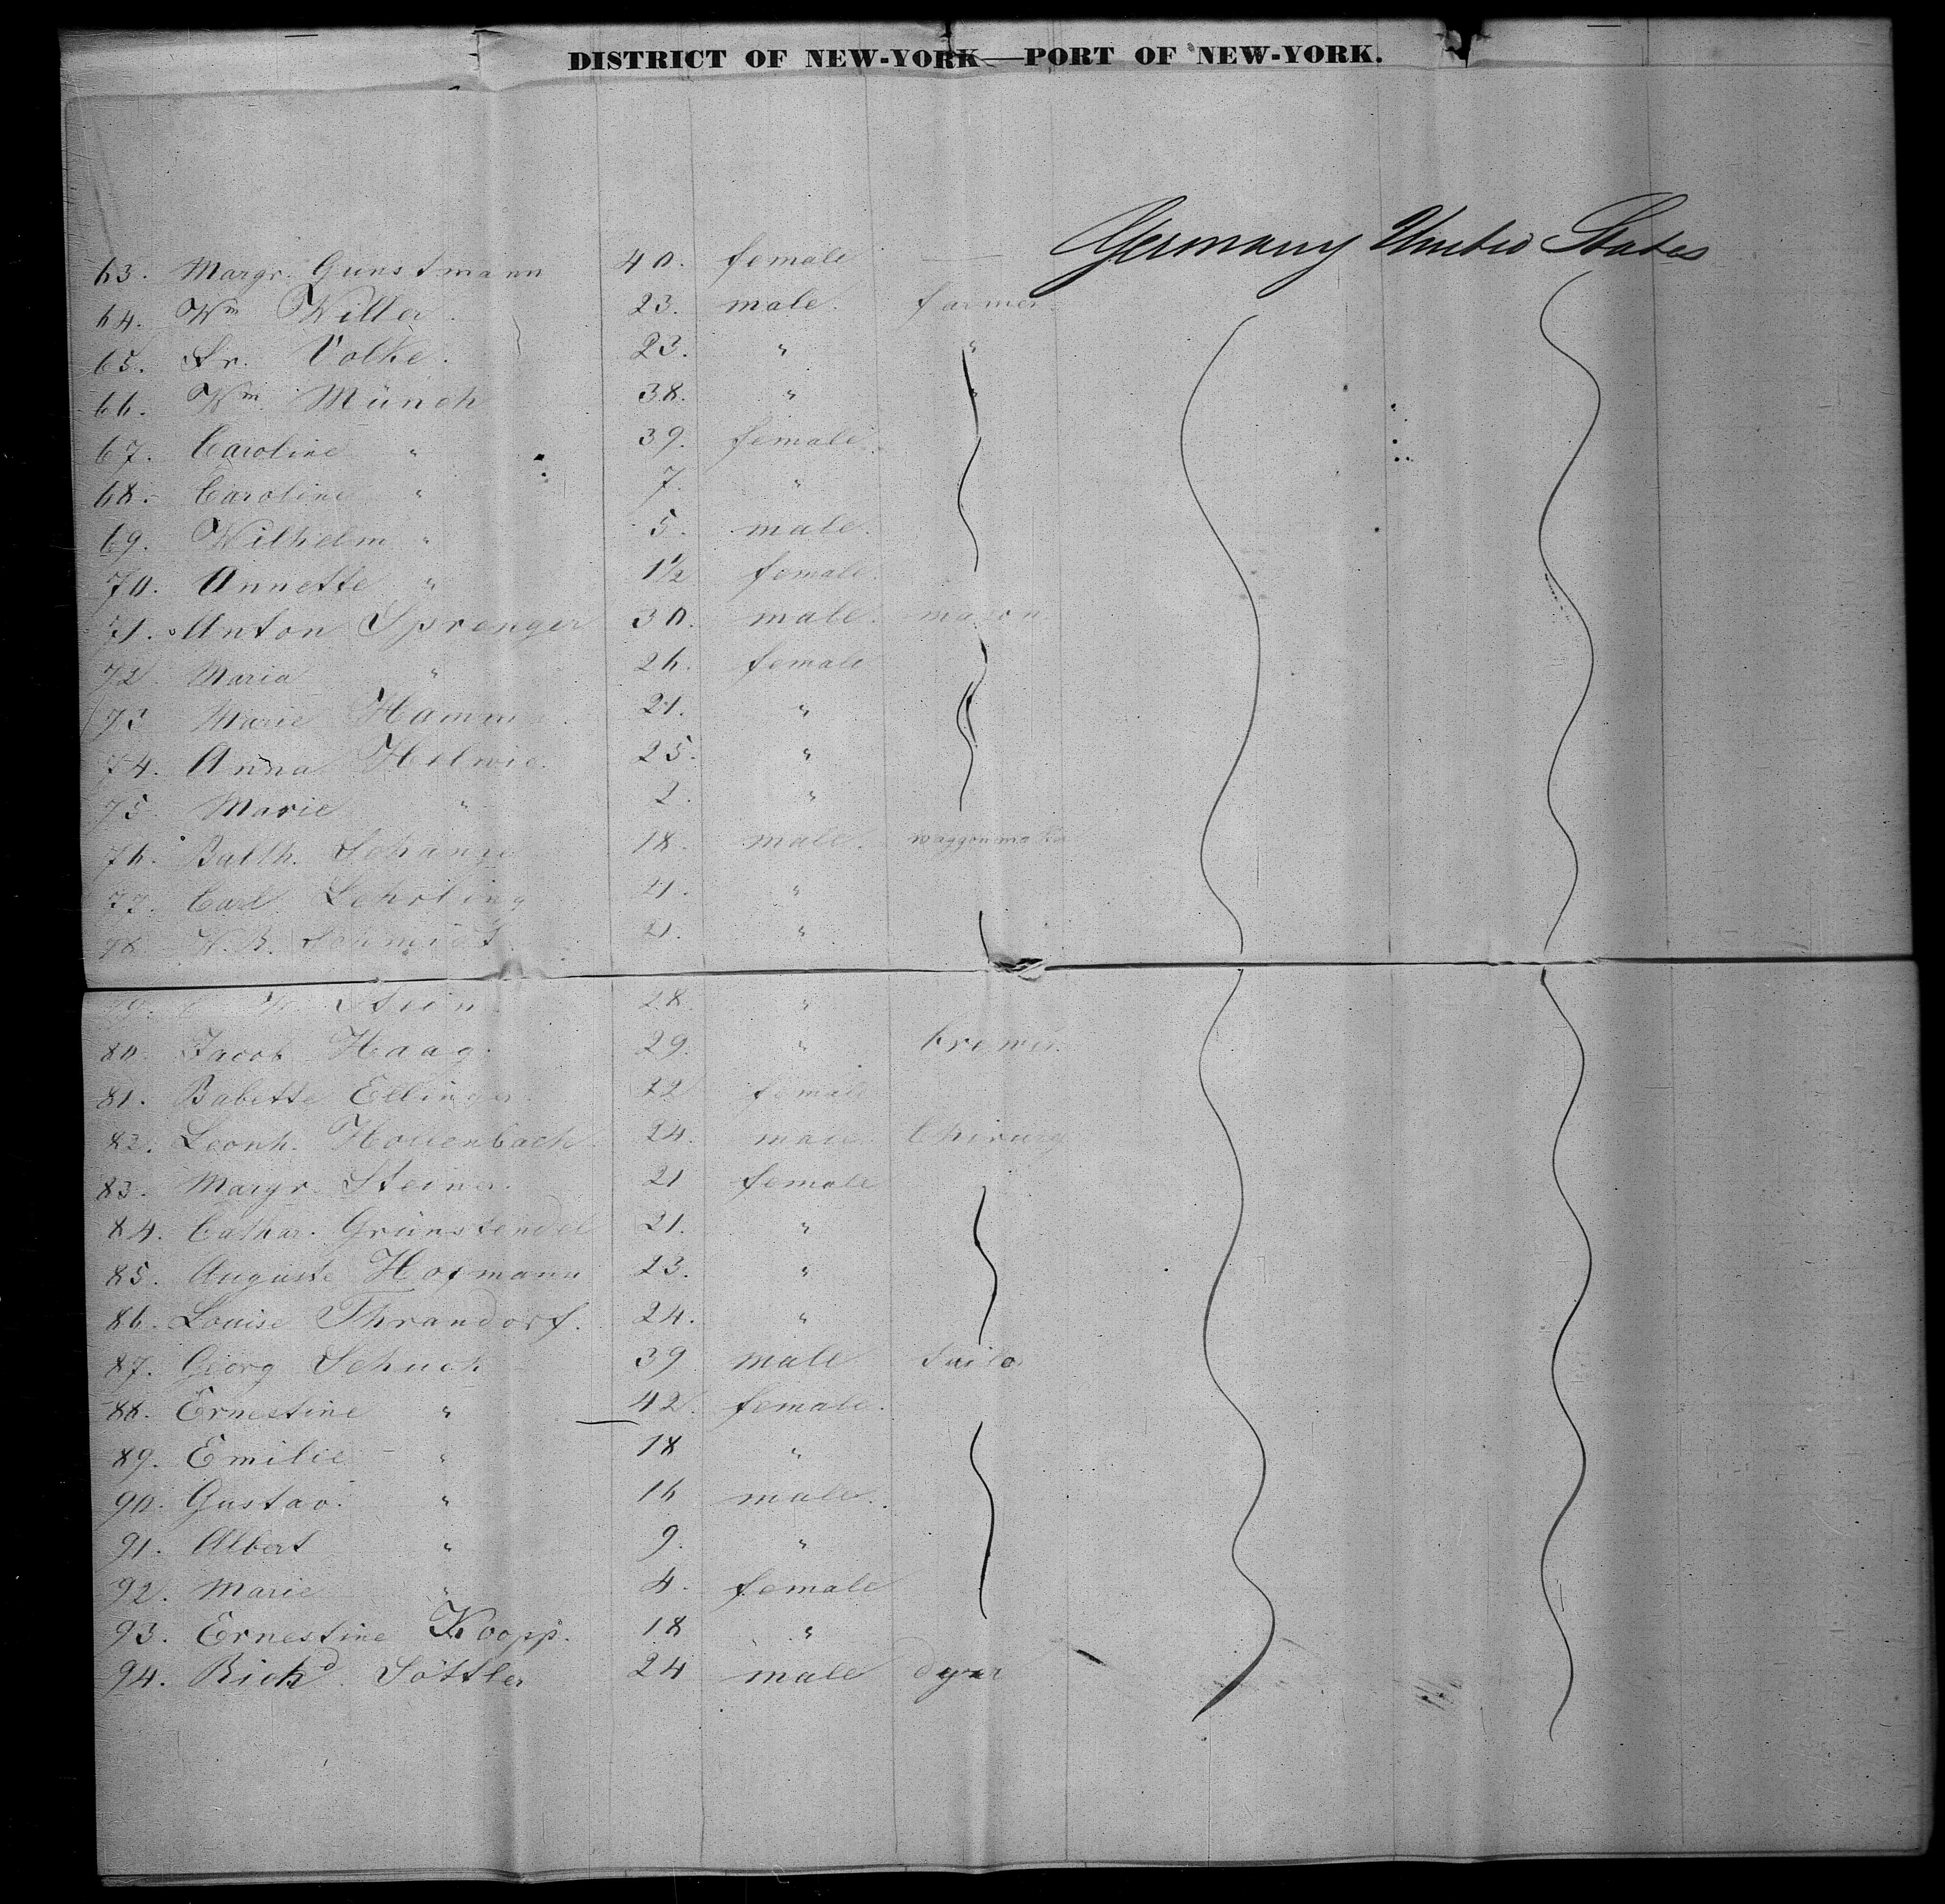 DISTRICT OF NEW-YORK—PORT OF NEW-YORK.
63. Margr. Gunstmann 40. female — Germany United States
64. Wm Willer. 23. male. farmer.
65. Fr. Volke. 23. " "
66. Wm. Münch 38. " "
67. Caroline " 39. female.
68. Caroline " 7. "
69. Wilhelm " 5. male.
70. Annette " 1½ female.
71. Anton Sprenger 30. male. mason.
72. Maria " 26. female
73 Marie Hamm 21. "
74. Anna Helwie. 25. "
75. Marie " 2. "
76. Balth. 18. male. waggonmaker
77. Carl Lehrling 21. "
78. W. B. Schmidt 21. "
79. Stein. 28. "
80. Jacob Haag. 29. " brewer.
81. Babette Ellinger. 22 female
82. Leonh. Hollenbach 24. male. Chirurg
83. Margr. Steiner. 21 female
84. Cathar. Grünstendel 21. "
85. Auguste Hofmann 23. "
86. Louise Thrandorf. 24. "
87. Georg Schuck 39 male tailor
88. Ernestine " 42. female.
89. Emilie " 18 "
90. Gustav. " 16 male.
91. Albert " 9. "
92. Marie " 4. female
93. Ernestine Koopp. 18 "
94. Richd. Söttler 24 male dyer